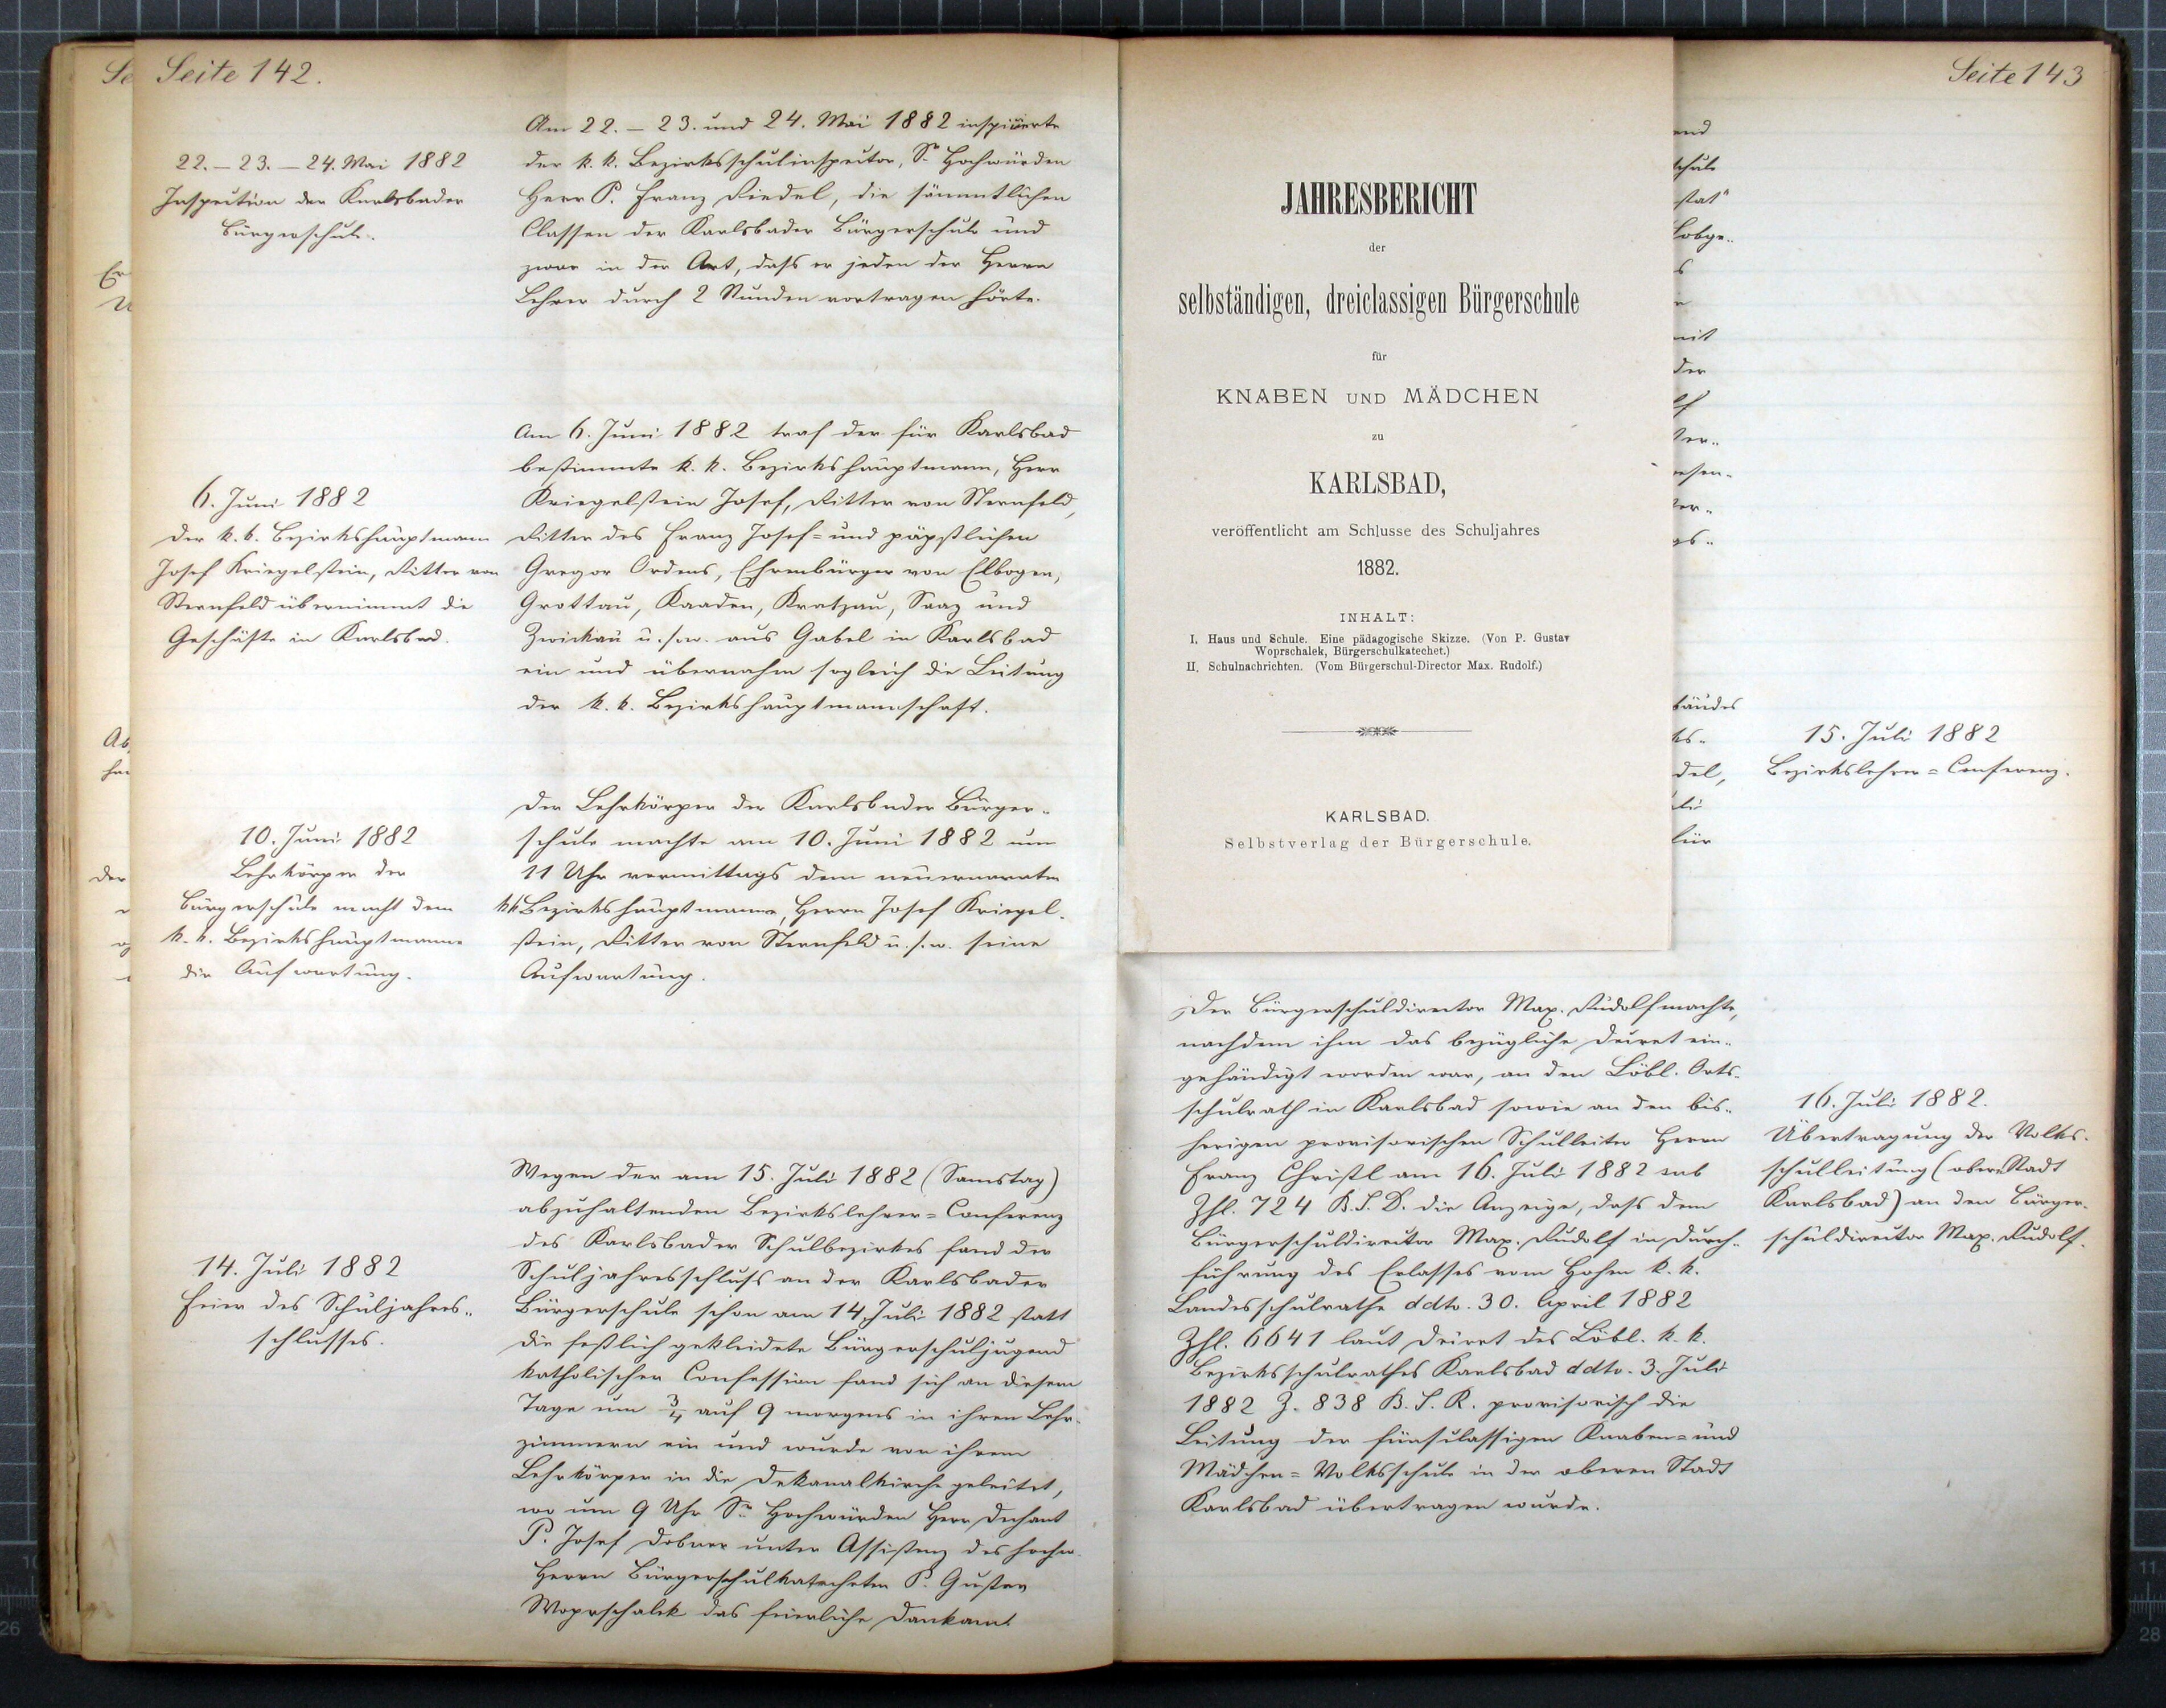 Seite 142.
22. – 23. – 24. Mai 1882
Inspection der Karlsbader
Bürgerschule.
Am 22. – 23. und 24. Mai 1882 inspicierte
der k. k. Bezirksschulinspector, Sr Hochwürden
Herr P. Franz Riedel, die sämmtlichen
Classen der Karlsbader Bürgerschule und
zwar in der Art, dass er jeden der Herrn
Lehrer durch 2 Stunden vortragen hörte.
6. Juni 1882
Der k. k. Bezirkshauptmann
Josef Kriegelstein, Ritter von
Sternfeld übernimmt die
Geschäfte in Karlsbad.
Am 6. Juni 1882 traf der für Karlsbad
bestimmte k. k. Bezirkshauptmann, Herr
Kriegelstein Josef, Ritter von Sternfeld,
Ritter des Franz Josef= und päpstlichen
Gregor Ordens, Ehrenbürger von Elbogen,
Grottau, Kaaden, Kratzau, Saaz und
Zwickau u. s. w. aus Gabel in Karlsbad
ein und übernahm sogleich die Leitung
der k. k. Bezirkshauptmannschaft.
10. Juni 1882
Lehrkörper der
Bürgerschule macht dem
k. k. Bezirkshauptmanne
die Aufwartung.
Der Lehrkörper der Karlsbader Bürger-
schule machte am 10. Juni 1882 um
11 Uhr vormittags dem neuernannten
kk Bezirkshauptmanne, Herrn Josef Kriegel-
stein, Ritter von Sternfeld u. s. w. seine
Aufwartung.
14. Juli 1882
Feier des Schuljahres-
schlusses.
Wegen der am 15. Juli 1882 (Samstag)
abzuhaltenden Bezirkslehrer=Conferenz
des Karlsbader Schulbezirkes fand der
Schuljahresschluss an der Karlsbader
Bürgerschule schon am 14. Juli 1882 statt
Die festlich gekleidete Bürgerschuljugend
katholischer Confession fand sich an diesem
Tage um 3/4 auf 9 morgens in ihren Lehr-
zimmern ein und wurde von ihrem
Lehrkörper in die Dekanalkirche geleitet,
wo um 9 Uhr Sr Hochwürden Herr Dechant
P. Josef Dobner unter Assistenz des hochw.
Herrn Bürgerschulkatecheten P. Gustav
Woprschalek das feierliche Dankamt
JAHRESBERICHT
der
selbständigen, dreiclassigen Bürgerschule
für
KNABEN UND MÄDCHEN
zu
KARLSBAD,
veröffentlicht am Schlusse des Schuljahres
1882.
INHALT:
I. Haus und Schule. Eine pädagogische Skizze. (Von P. Gustav
Woprschalek, Bürgerschulkatechet.)
II. Schulnachrichten. (Vom Bürgerschul-Director Max. Rudolf.)
KARLSBAD.
Selbstverlag der Bürgerschule.
Seite 143
15. Juli 1882
Bezirkslehrer=Conferenz.
Der Bürgerschuldirector Max. Rudolf machte,
nachdem ihm das bezügliche Decret ein-
gehändigt worden war, an den Löbl. Orts-
schulrath in Karlsbad sowie an den bis-
herigen provisorischen Schulleiter Herrn
Franz Christl am 16. Juli 1882 sub
Zhl. 724 B. S. D. die Anzeige, dass dem
Bürgerschuldirector Max. Rudolf in Durch-
führung des Erlasses vom Hohen k. k.
Landesschulrathe ddto. 30. April 1882
Zhl. 6641 laut Decret des Löbl. k. k.
Bezirksschulrathes Karlsbad ddto. 3. Juli
1882 Z. 838 B. S. R. provisorisch die
Leitung der fünfclassigen Knaben= und
Mädchen=Volksschule in der oberen Stadt
Karlsbad übertragen wurde.
16. Juli 1882.
Übertragung der Volks-
schulleitung (obere Stadt
Karlsbad) an den Bürger-
schuldirector Max. Rudolf.